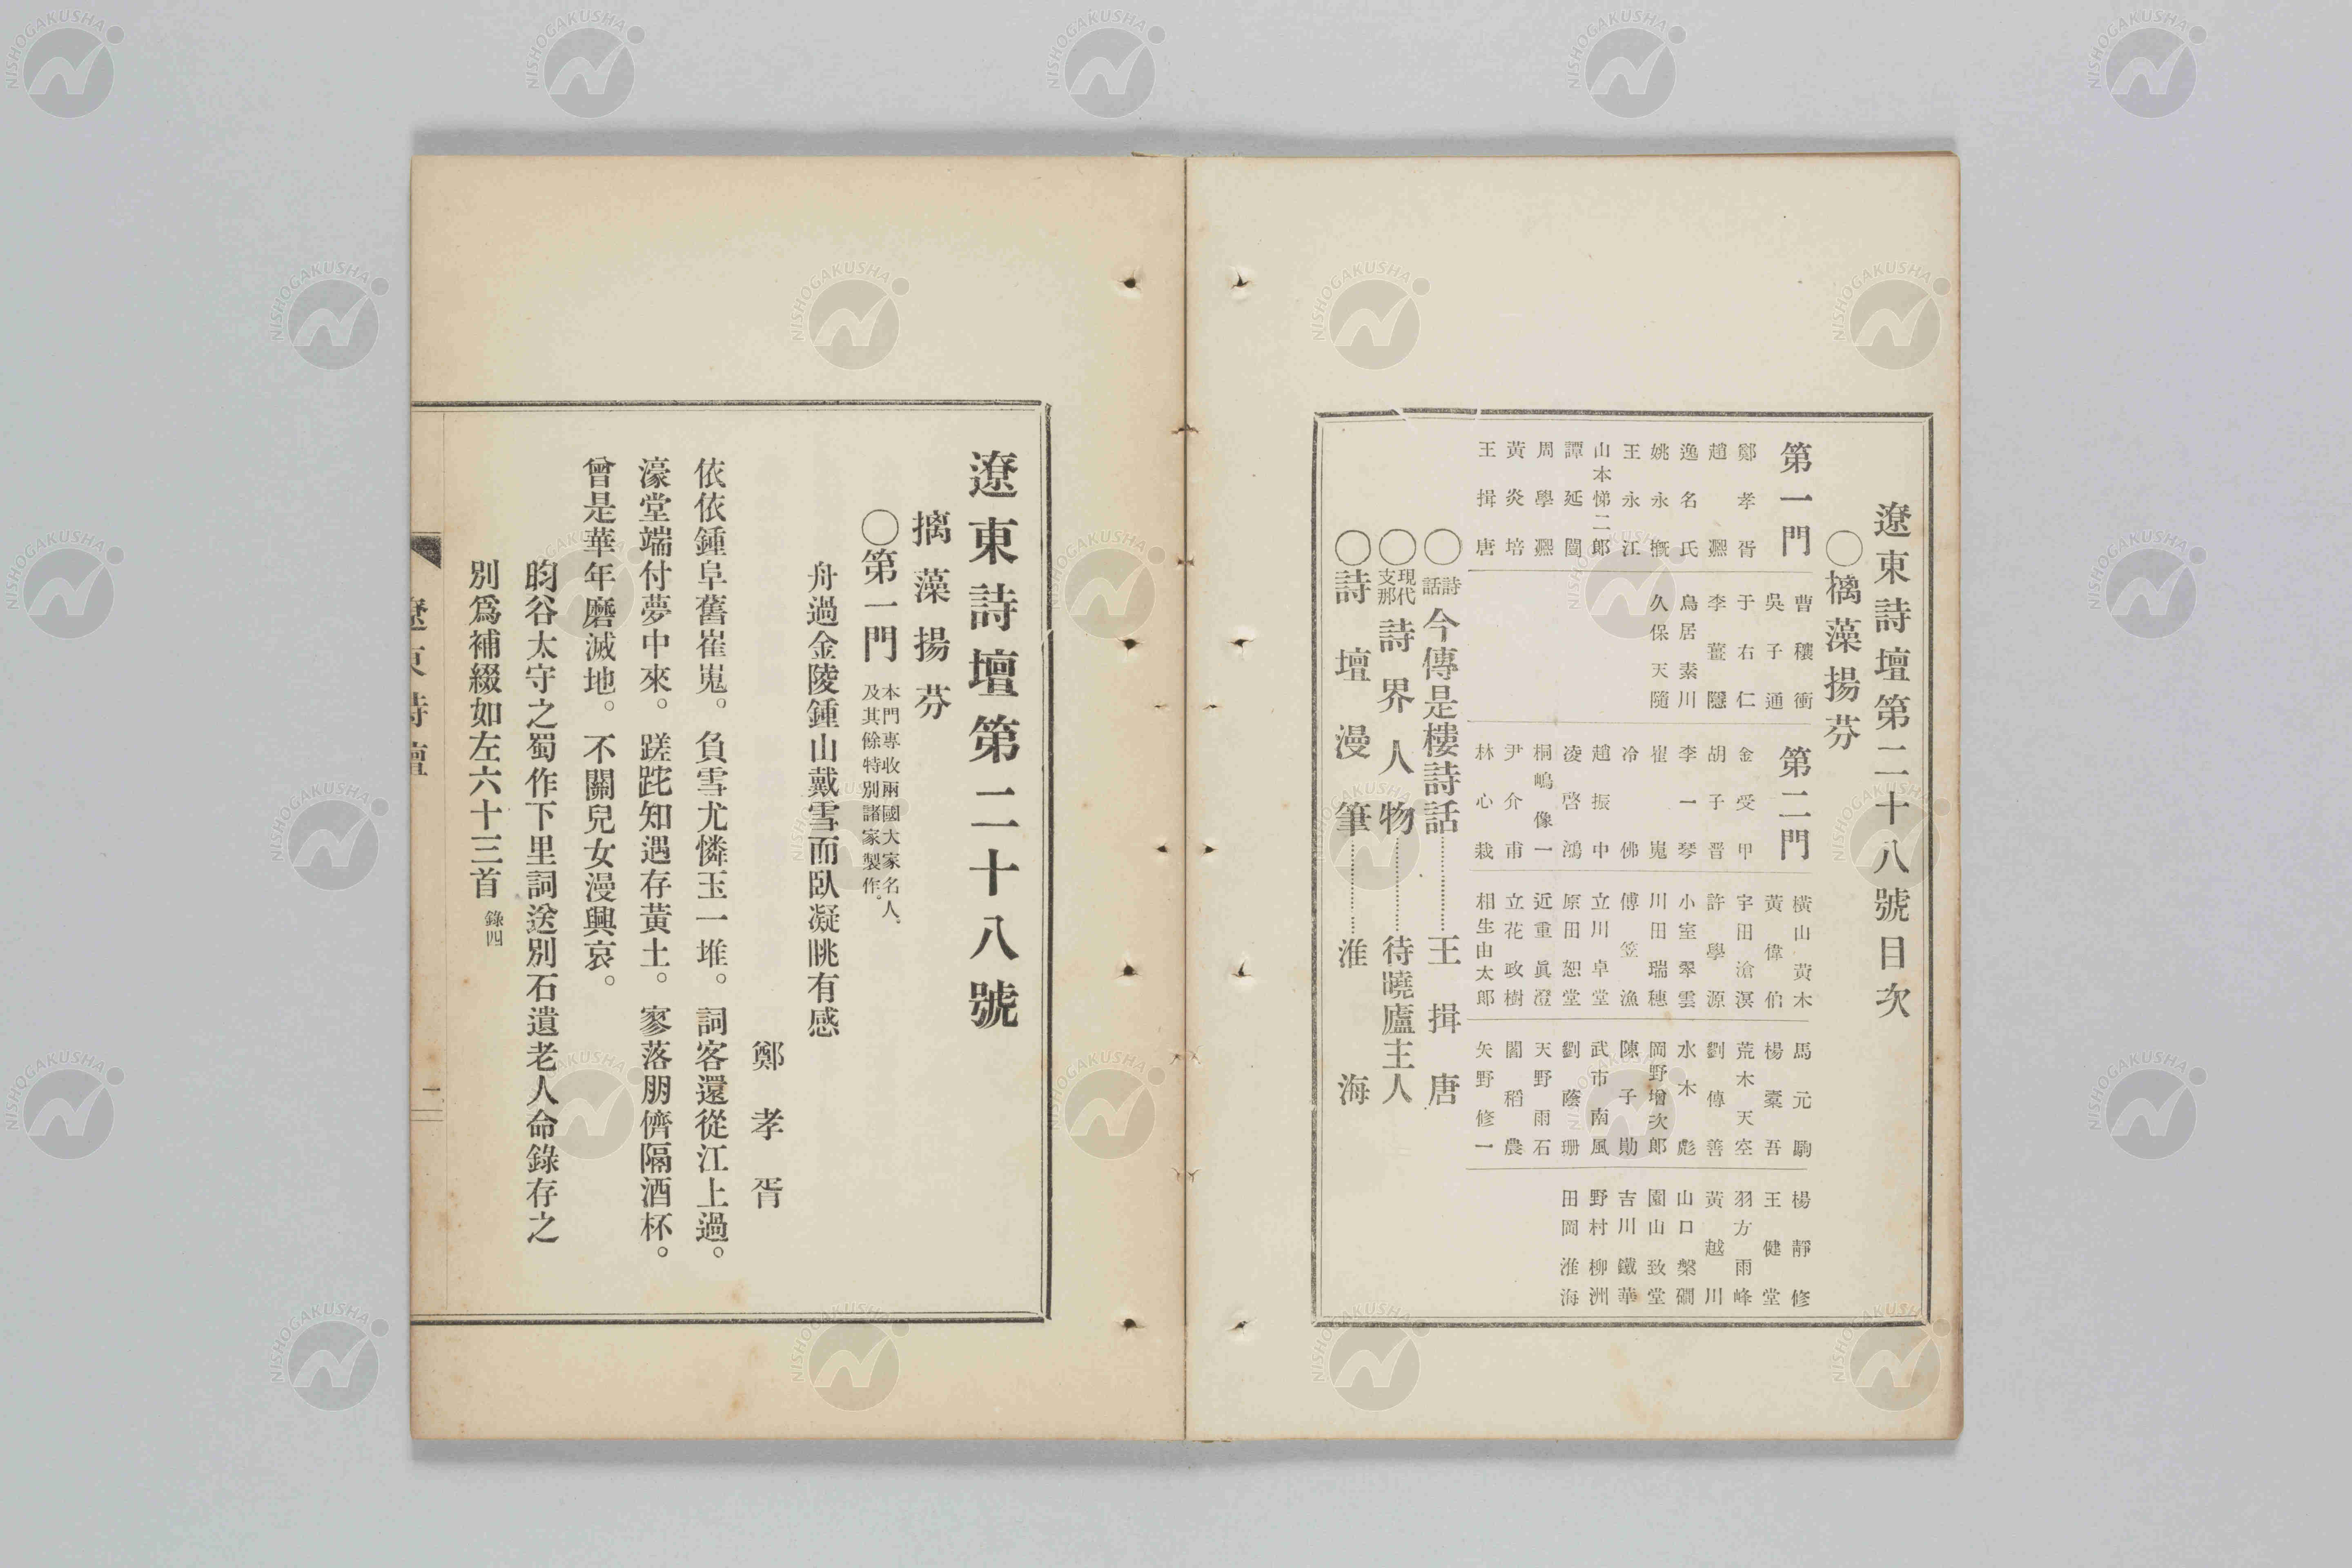 遼東詩壇第二十八號目次
〇摛藻揚芬
第一門
鄭孝胥
趙㷩
逸名氏
姚永概
王永江
山本悌二郎
譚延闓
周學㷩
黃炎培
王揖唐
曹穰衡
吳子通
于右仁
李薑隱
鳥居素川
久保天隨
第二門
金受甲
胡子晋
李一琴
崔嵬
冷佛
趙振中
凌啓鴻
桐嶋像一
尹介甫
林心栽
橫山黃木
黃偉伯
宇田滄溟
許學源
小室翠雲
川田瑞穗
傅笠漁
立川卓堂
原田恕堂
近重眞澄
立花政樹
相生由太郎
馬元駒
楊槖吾
荒木天空
劉傳善
水木彪
岡野增次郎
陳子勛
武市南風
劉蔭珊
天野雨石
閻稻農
矢野修一
楊靜修
王健堂
羽方雨峰
黃越川
山口槃磵
園山致堂
吉川鐵華
野村柳洲
田岡淮海
〇詩話 今傳是樓詩話…………王揖唐
〇現代支那 詩界人物…………待曉廬主人
〇詩壇漫筆…………淮海
遼東詩壇第二十八號
摛藻揚芬
〇第一門 本門專收兩國大家名人。及其餘特別諸家製作。
舟過金陵鍾山戴雪而臥凝眺有感
鄭孝胥
依依鍾阜舊崔嵬。負雪尤憐玉一堆。詞客還從江上過。
濠堂端付夢中來。蹉跎知遇存黃土。寥落朋儕隔酒杯。
曾是華年磨滅地。不關兒女漫興哀。
昀谷太守之蜀作下里詞送別石遺老人命錄存之
別爲補綴如左六十三首 錄四
遼東詩壇
一
NISHOGAKUSHA